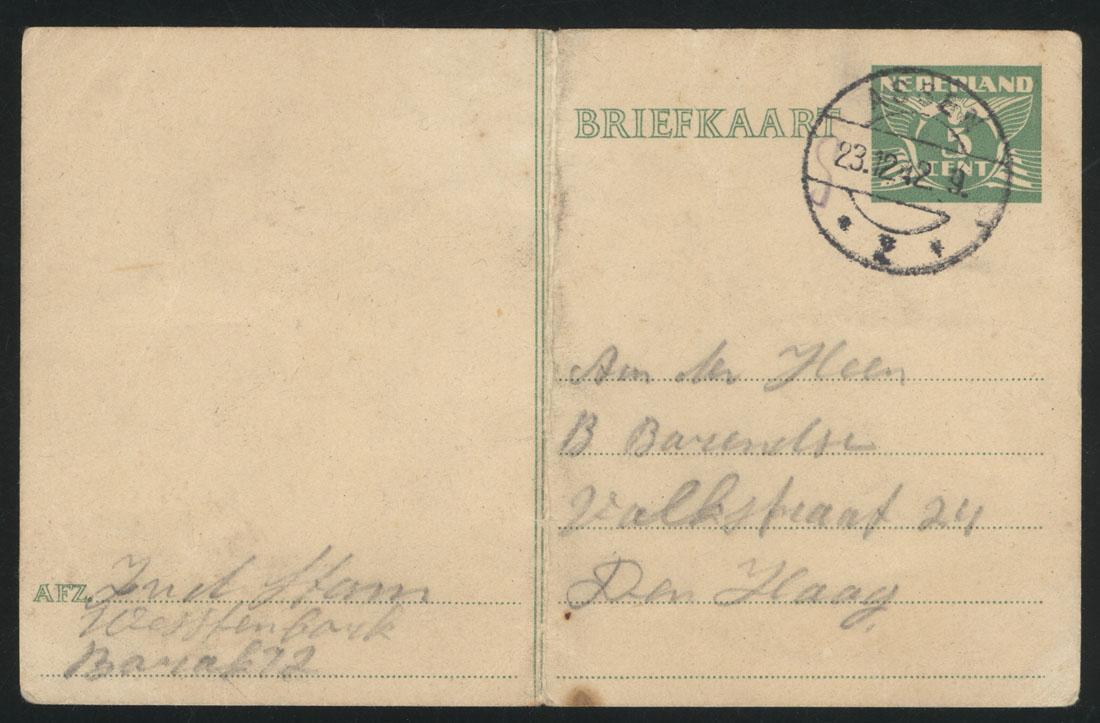 NEDERLAND
BRIEFKAART
5
CENT
ASSEN
23.12.42 9.
2
Aan der Heer
B Barendse
Valkstraat 24
Den Haag
AFZ. Stam
Westenbork
Barak 72